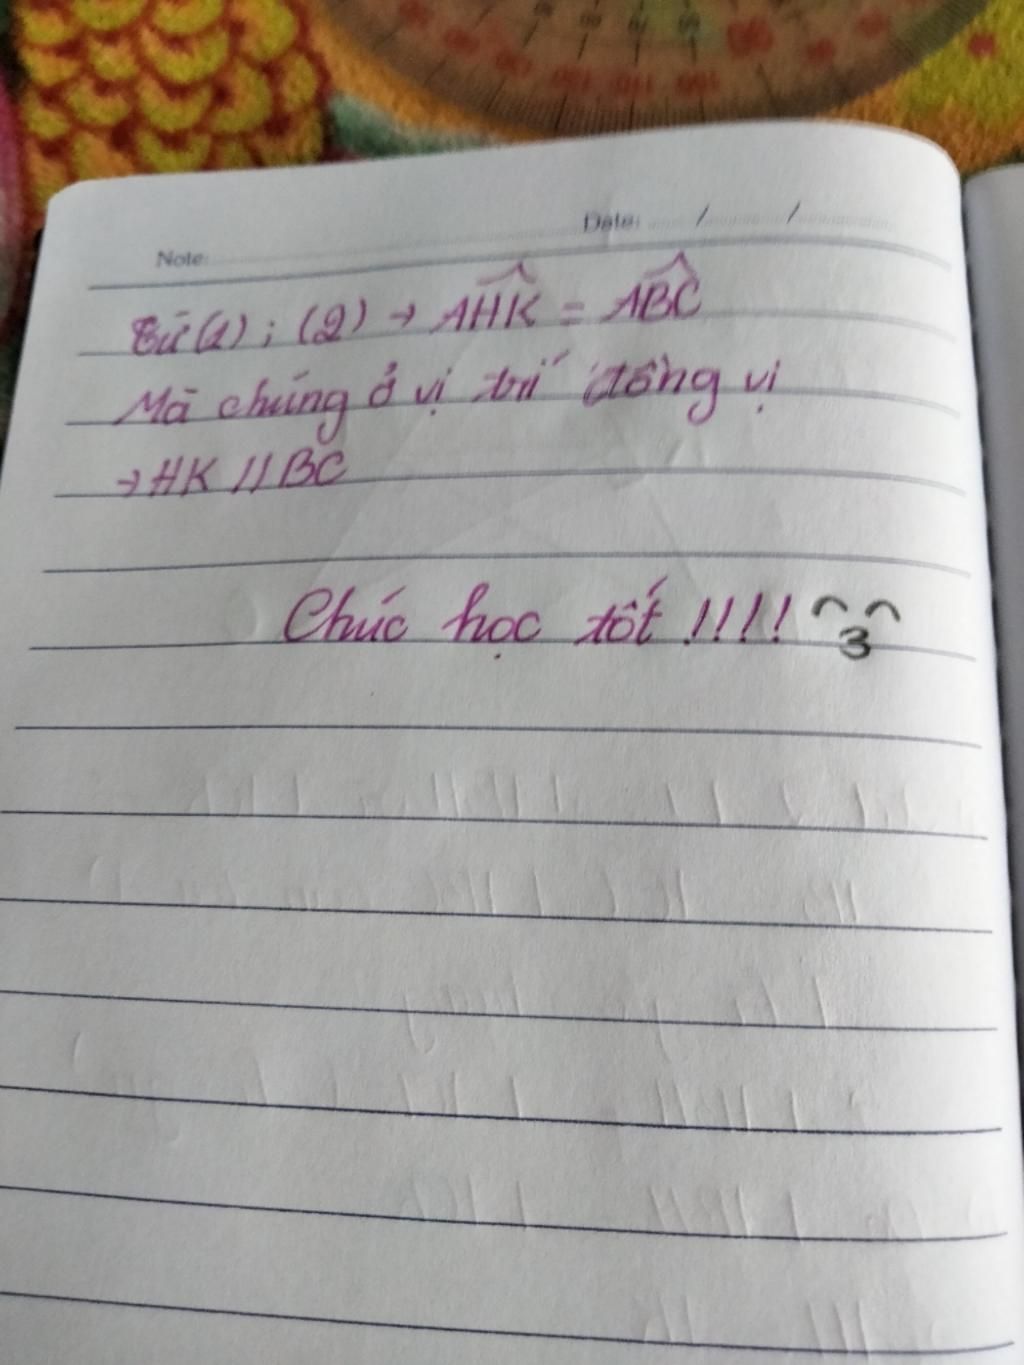 Date: / /
Note:
Từ (1) ; (2) → AHK = ABC
Mà chúng ở vị trí đồng vị
→ HK // BC
Chúc học tốt !!!!